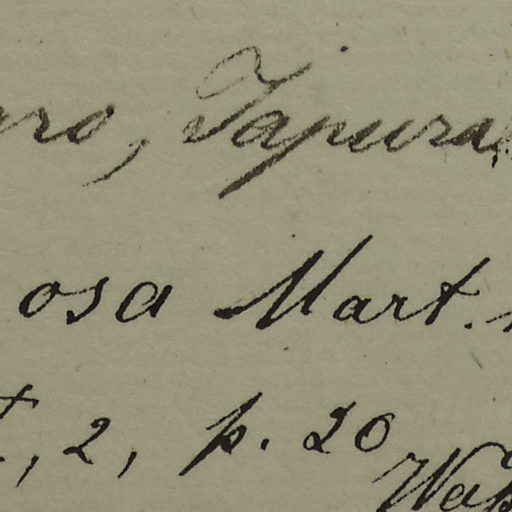 ro, Japura
osa Mart.
t, 2, p. 20
Wa